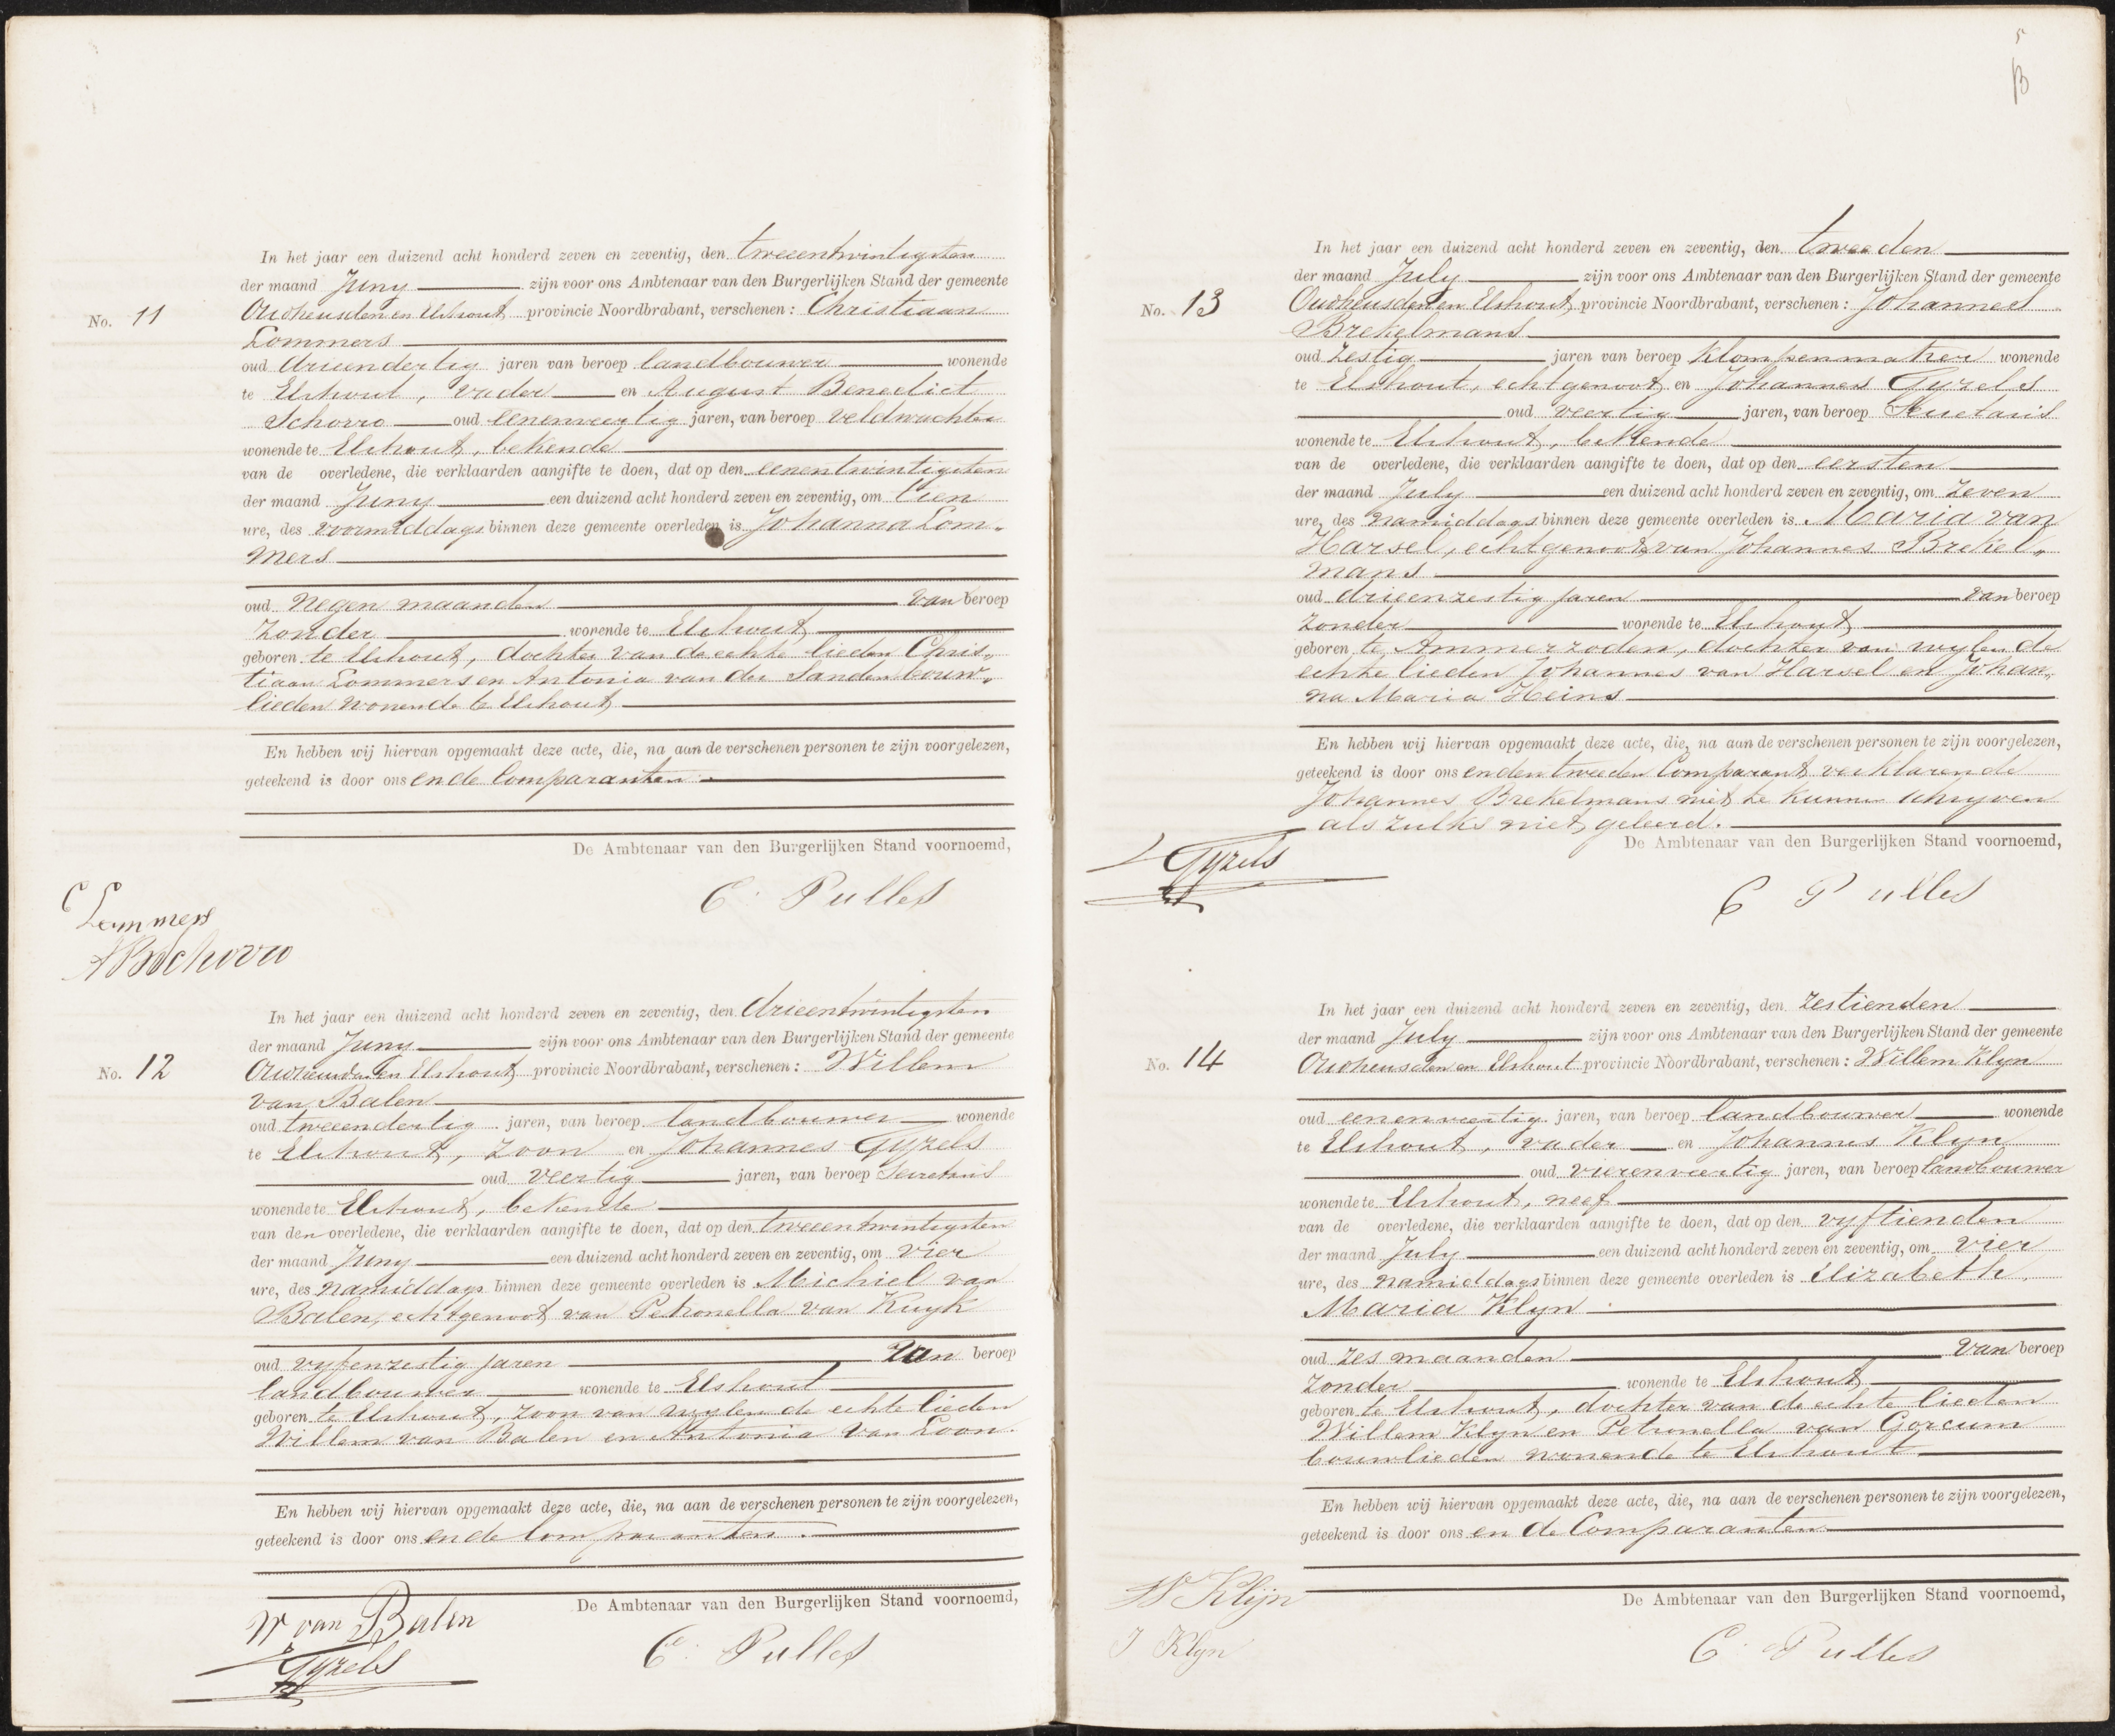 In het jaar een duizend acht honderd zeven en zeventig, den tweeentwintigsten
der maand Juny zijn voor ons Ambtenaar van den Burgerlijken Stand der gemeente
No. 11 Oudheusden en Elshout provincie Noordbrabant, verschenen: Christiaan
Lommers
oud drieendertig jaren van beroep landbouwer wonende
te Elshout, vader en August Benedict
Schorro oud eenenveertig jaren, van beroep veldwachter
wonende te Elshout, bekende
van de overledene, die verklaarden aangifte te doen, dat op den eenentwintigsten
der maand Juny een duizend acht honderd zeven en zeventig, om tien
ure, des voormiddags binnen deze gemeente overleden is Johanna Lom-
mers
oud negen maanden van beroep
zonder wonende te Elshout
geboren te Elshout, dochter van de echte lieden Chris-
tiaan Lommers en Antonia van der Sanden bouw-
lieden wonende te Elshout
En hebben wij hiervan opgemaakt deze acte, die, na aan de verschenen personen te zijn voorgelezen,
geteekend is door ons en de Comparanten.
De Ambtenaar van den Burgerlijken Stand voornoemd,
C. Pulles
C Lommers
ABSchorro
In het jaar een duizend acht honderd zeven en zeventig, den drieentwintigsten
der maand Juny zijn voor ons Ambtenaar van den Burgerlijken Stand der gemeente
No. 12 Oudheusden en Elshout provincie Noordbrabant, verschenen: Willem
van Balen
oud tweeendertig jaren, van beroep landbouwer wonende
te Elshout, zoon en Johannes Gyzels
oud veertig jaren, van beroep Secretaris
wonende te Elshout, bekende
van den overledene, die verklaarden aangifte te doen, dat op den tweeentwintigsten
der maand Juny een duizend acht honderd zeven en zeventig, om vier
ure, des namiddags binnen deze gemeente overleden is Michiel van
Balen, echtgenoot van Petronella van Kuyk
oud vyfenzestig jaren van beroep
landbouwer wonende te Elshout
geboren te Elshout, zoon van wylen de echte lieden
Willem van Balen en Antonia van Loon.
En hebben wij hiervan opgemaakt deze acte, die, na aan de verschenen personen te zijn voorgelezen,
geteekend is door ons en de Comparanten.
De Ambtenaar van den Burgerlijken Stand voornoemd,
W van Balen
Gyzels
C. Pulles
5
In het jaar een duizend acht honderd zeven en zeventig, den tweeden
der maand July zijn voor ons Ambtenaar van den Burgerlijken Stand der gemeente
No. 13 Oudheusden en Elshout provincie Noordbrabant, verschenen: Johannes
Brekelmans
oud zestig jaren van beroep klompenmaker wonende
te Elshout, echtgenoot en Johannes Gyzels
oud veertig jaren, van beroep Secretaris
wonende te Elshout, bekende
van de overledene, die verklaarden aangifte te doen, dat op den eersten
der maand July een duizend acht honderd zeven en zeventig, om zeven
ure, des namiddags binnen deze gemeente overleden is Maria van
Harsel, echtgenoot van Johannes Brekel-
mans
oud drieenzestig jaren van beroep
zonder wonende te Elshout
geboren te Ammerzoden, dochter van wylen de
echte lieden Johannes van Harsel en Johan-
na Maria Heins
En hebben wij hiervan opgemaakt deze acte, die, na aan de verschenen personen te zijn voorgelezen,
geteekend is door ons en den tweeden Comparant verklarende
Johannes Brekelmans niet te kunnen schryven
als zulks niet geleerd.
De Ambtenaar van den Burgerlijken Stand voornoemd,
Gyzels
C Pulles
In het jaar een duizend acht honderd zeven en zeventig, den zestienden
der maand July zijn voor ons Ambtenaar van den Burgerlijken Stand der gemeente
No. 14 Oudheusden en Elshout provincie Noordbrabant, verschenen: Willem Klyn
oud eenenveertig jaren, van beroep landbouwer wonende
te Elshout, vader en Johannes Klyn
oud vierenveertig jaren, van beroep landbouwer
wonende te Elshout, neef
van de overledene, die verklaarden aangifte te doen, dat op den vyftienden
der maand July een duizend acht honderd zeven en zeventig, om vier
ure, des namiddags binnen deze gemeente overleden is Elizabeth
Maria Klyn
oud zes maanden van beroep
zonder wonende te Elshout
geboren te Elshout, dochter van de echte lieden
Willem Klyn en Petronella van Gorcum
bouwlieden wonende te Elshout
En hebben wij hiervan opgemaakt deze acte, die, na aan de verschenen personen te zijn voorgelezen,
geteekend is door ons en de Comparanten.
De Ambtenaar van den Burgerlijken Stand voornoemd,
W Klijn
J Klyn
C. Pulles